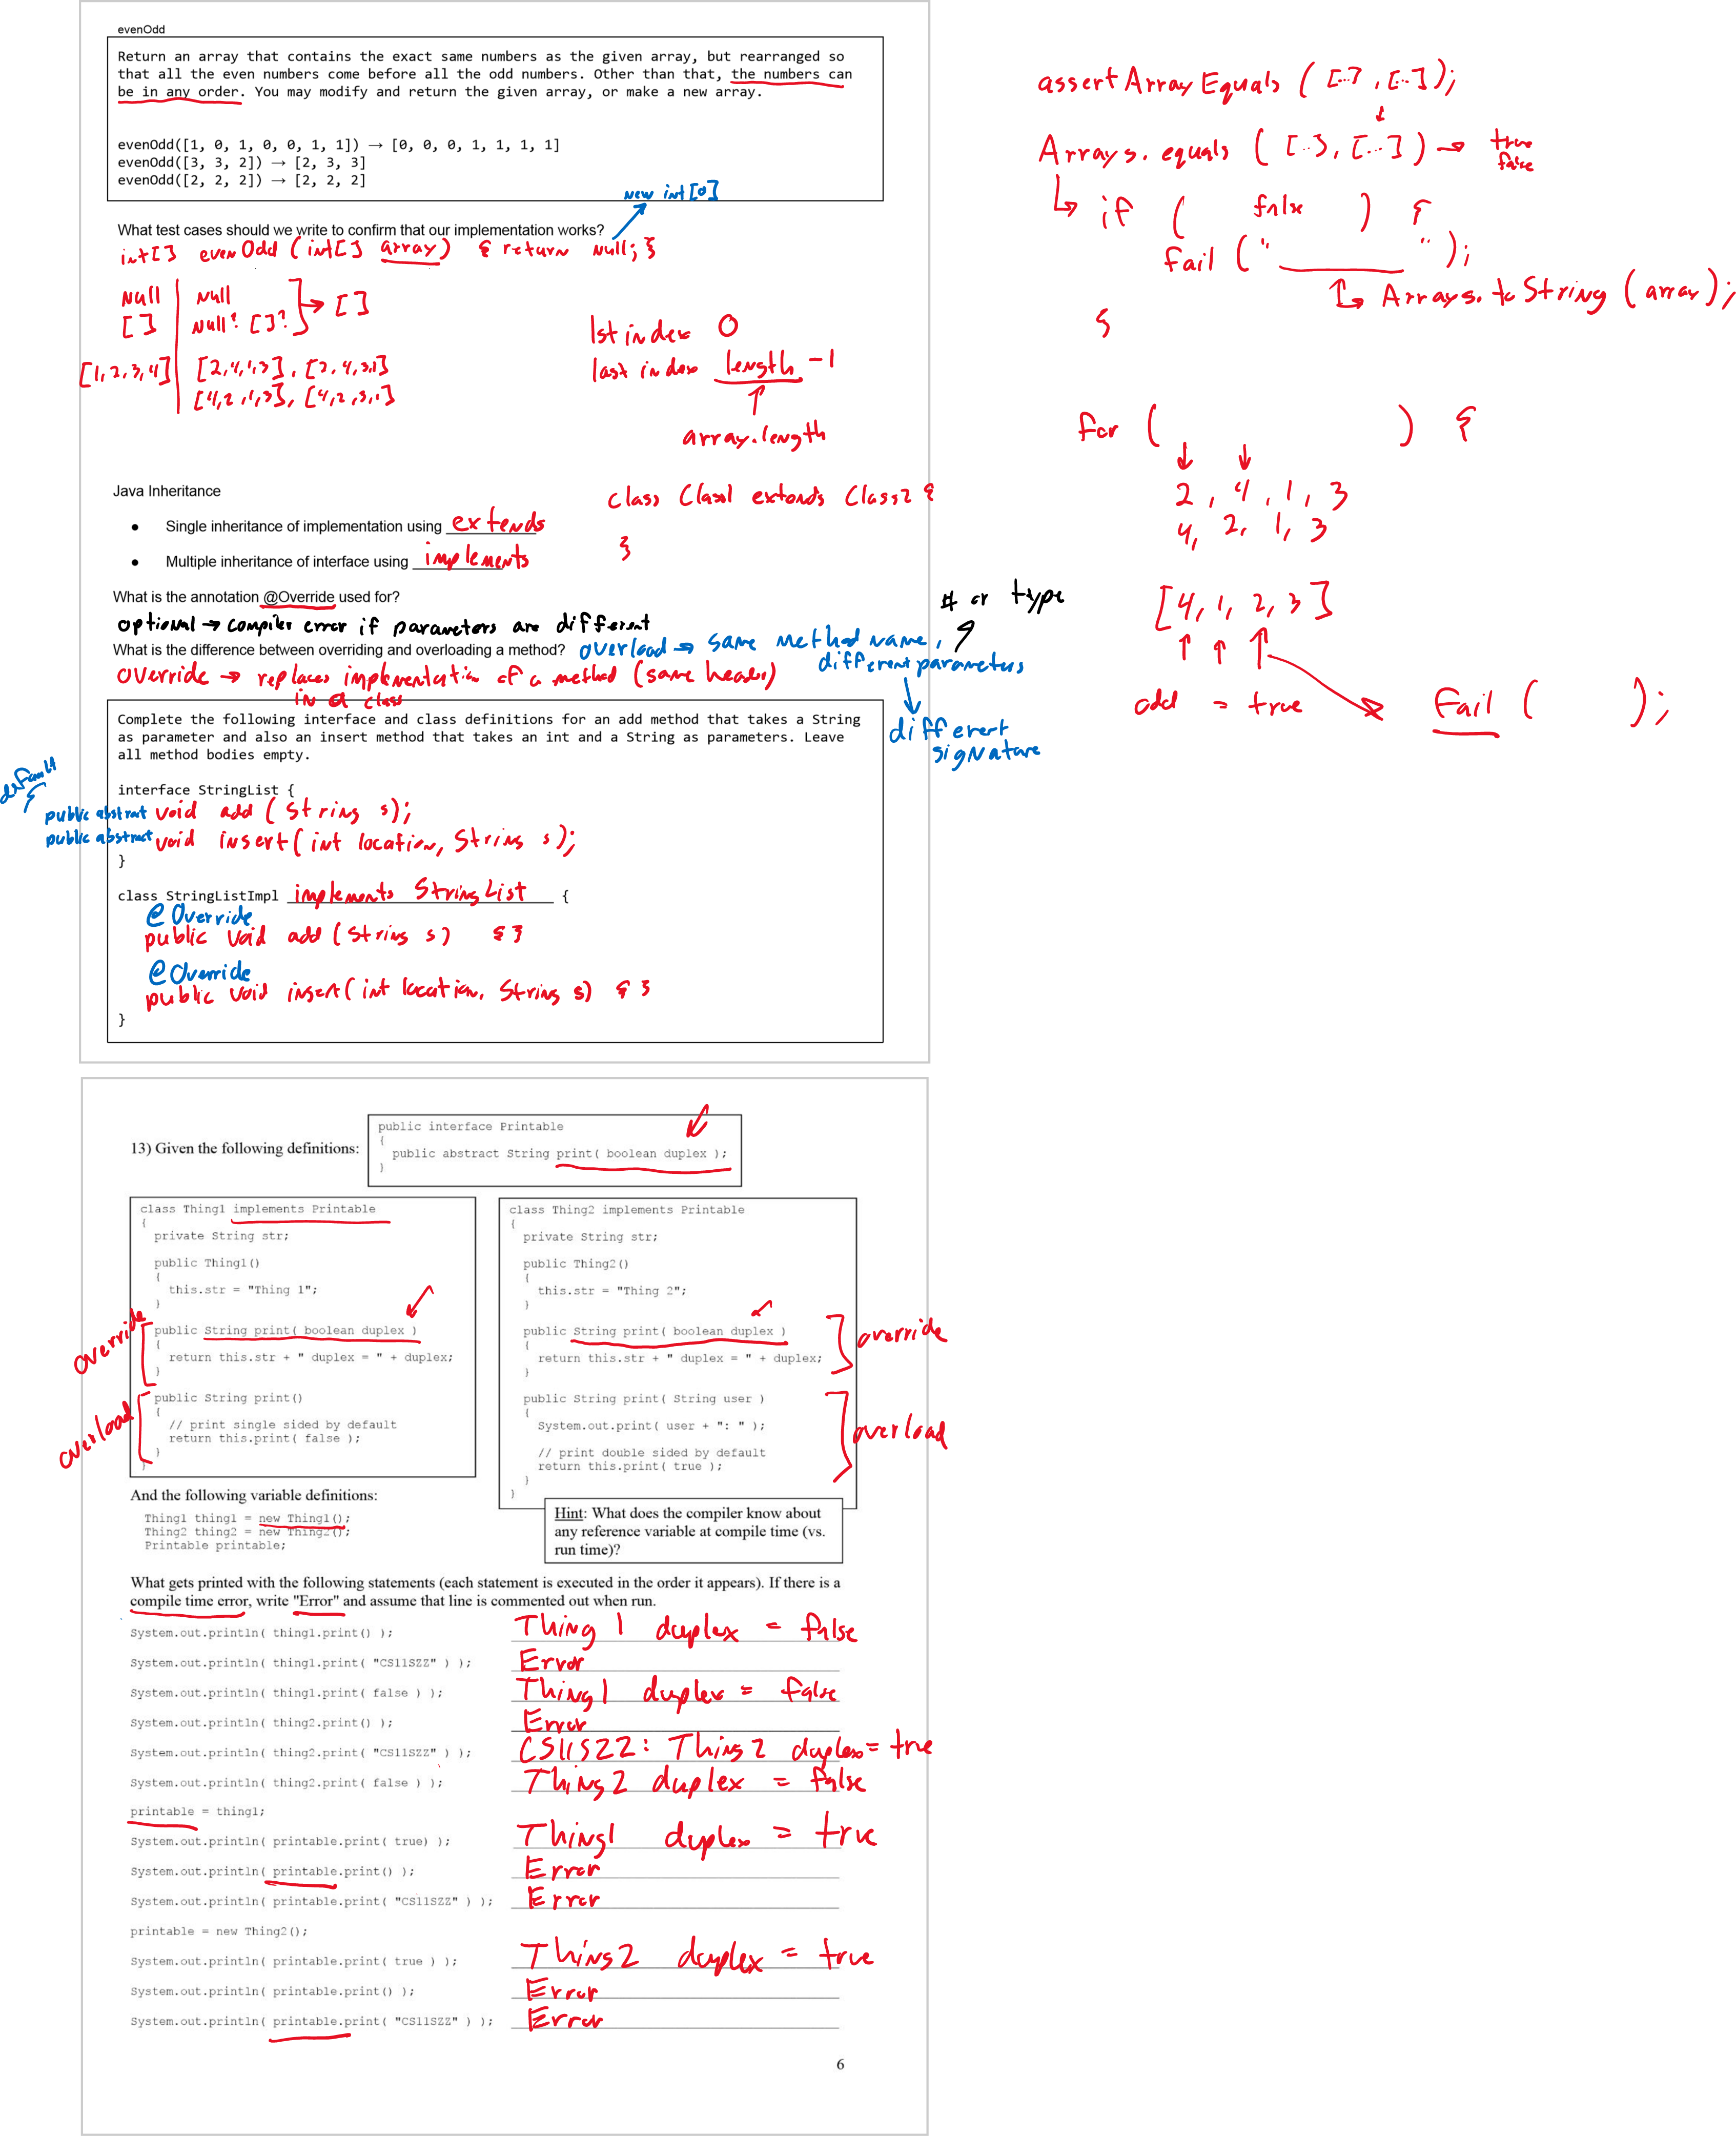 evenOdd
Return an array that contains the exact same numbers as the given array, but rearranged so
that all the even numbers come before all the odd numbers. Other than that, the numbers can
be in any order. You may modify and return the given array, or make a new array.
evenOdd([1, 0, 1, 0, 0, 1, 1]) → [0, 0, 0, 1, 1, 1, 1]
evenOdd([3, 3, 2]) → [2, 3, 3]
evenOdd([2, 2, 2]) → [2, 2, 2]
new int[0]
What test cases should we write to confirm that our implementation works?
int[] evenOdd (int[] array) { return null; }
null | null
[] | null? []? → []
[1,2,3,4] | [2,4,1,3], [2,4,3,1]
[4,2,1,3], [4,2,3,1]
1st index 0
last index length -1
array.length
Java Inheritance
• Single inheritance of implementation using extends
• Multiple inheritance of interface using implements
class Class1 extends Class2 {
}
What is the annotation @Override used for?
optional → compiler error if parameters are different
What is the difference between overriding and overloading a method?
overload → same method name,
different parameters
# or type
different
signature
override → replaces implementation of a method (same header)
in a class
Complete the following interface and class definitions for an add method that takes a String
as parameter and also an insert method that takes an int and a String as parameters. Leave
all method bodies empty.
interface StringList {
default
public abstract void add (String s);
public abstract void insert(int location, String s);
}
class StringListImpl implements StringList {
@Override
public void add (String s) { }
@Override
public void insert(int location, String s) { }
}
assertArrayEquals ([..], [..]);
Arrays.equals ([..], [...]) → true
false
if ( false ) {
fail (" ");
Arrays.toString (array);
}
for ( ) {
2, 4, 1, 3
4, 2, 1, 3
[4, 1, 2, 3]
odd = true
fail ( );
13) Given the following definitions:
public interface Printable
{
public abstract String print( boolean duplex );
}
class Thing1 implements Printable
{
private String str;
public Thing1()
{
this.str = "Thing 1";
}
override
public String print( boolean duplex )
{
return this.str + " duplex = " + duplex;
}
overload
public String print()
{
// print single sided by default
return this.print( false );
}
}
class Thing2 implements Printable
{
private String str;
public Thing2()
{
this.str = "Thing 2";
}
public String print( boolean duplex )
{
return this.str + " duplex = " + duplex;
}
override
public String print( String user )
{
System.out.print( user + ": " );
// print double sided by default
return this.print( true );
}
}
overload
And the following variable definitions:
Thing1 thing1 = new Thing1();
Thing2 thing2 = new Thing2();
Printable printable;
Hint: What does the compiler know about
any reference variable at compile time (vs.
run time)?
What gets printed with the following statements (each statement is executed in the order it appears). If there is a
compile time error, write "Error" and assume that line is commented out when run.
System.out.println( thing1.print() ); Thing 1 duplex = false
System.out.println( thing1.print( "CS11SZZ" ) ); Error
System.out.println( thing1.print( false ) ); Thing1 duplex = false
System.out.println( thing2.print() ); Error
System.out.println( thing2.print( "CS11SZZ" ) ); CS11SZZ: Thing2 duplex= true
System.out.println( thing2.print( false ) ); Thing2 duplex = false
printable = thing1;
System.out.println( printable.print( true) ); Thing1 duplex = true
System.out.println( printable.print() ); Error
System.out.println( printable.print( "CS11SZZ" ) ); Error
printable = new Thing2();
System.out.println( printable.print( true ) ); Thing2 duplex = true
System.out.println( printable.print() ); Error
System.out.println( printable.print( "CS11SZZ" ) ); Error
6